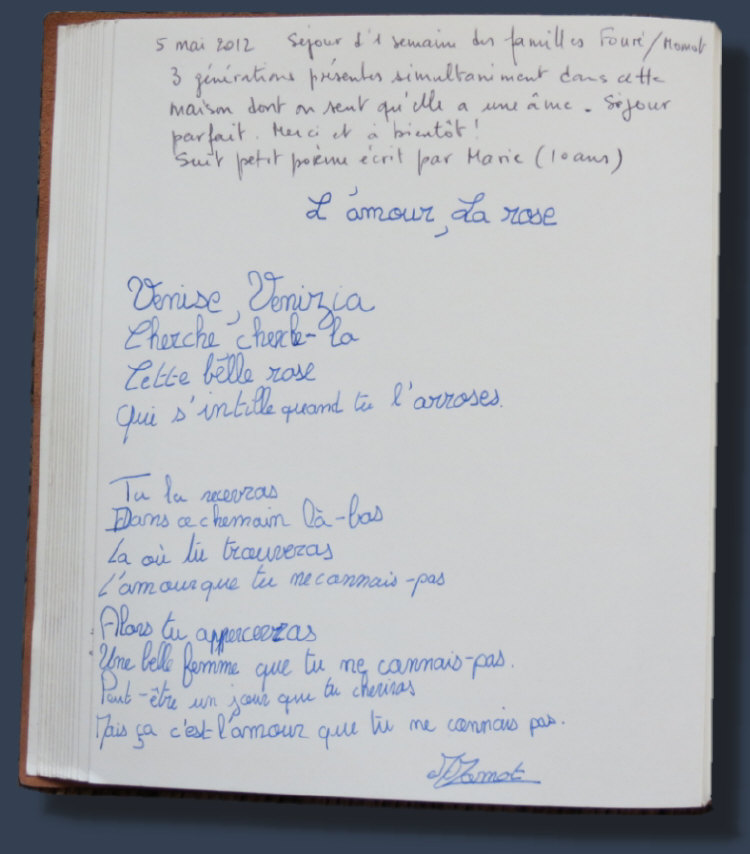 5 mai 2012 Séjour d'1 semaine des familles Fouré/Momot
3 générations présentes simultaniment dans cette
maison dont on sent qu'elle a une âme. Séjour
parfait. Merci et à bientôt!
Suit petit poème écrit par Marie (10 ans)
L'amour, La rose
Venise, Venizia
Cherche cherche-la
Cette belle rose
Qui s'intille quand tu l'arroses.
Tu la recevras
Dans ce chemain là-bas
La où tu trouveras
L'amour que tu ne connais-pas
Alors tu apperceveras
Une belle femme que tu ne connais-pas.
Peut-être un jour que tu cheriras
Mais ça c'est l'amour que tu ne connais pas.
Momot